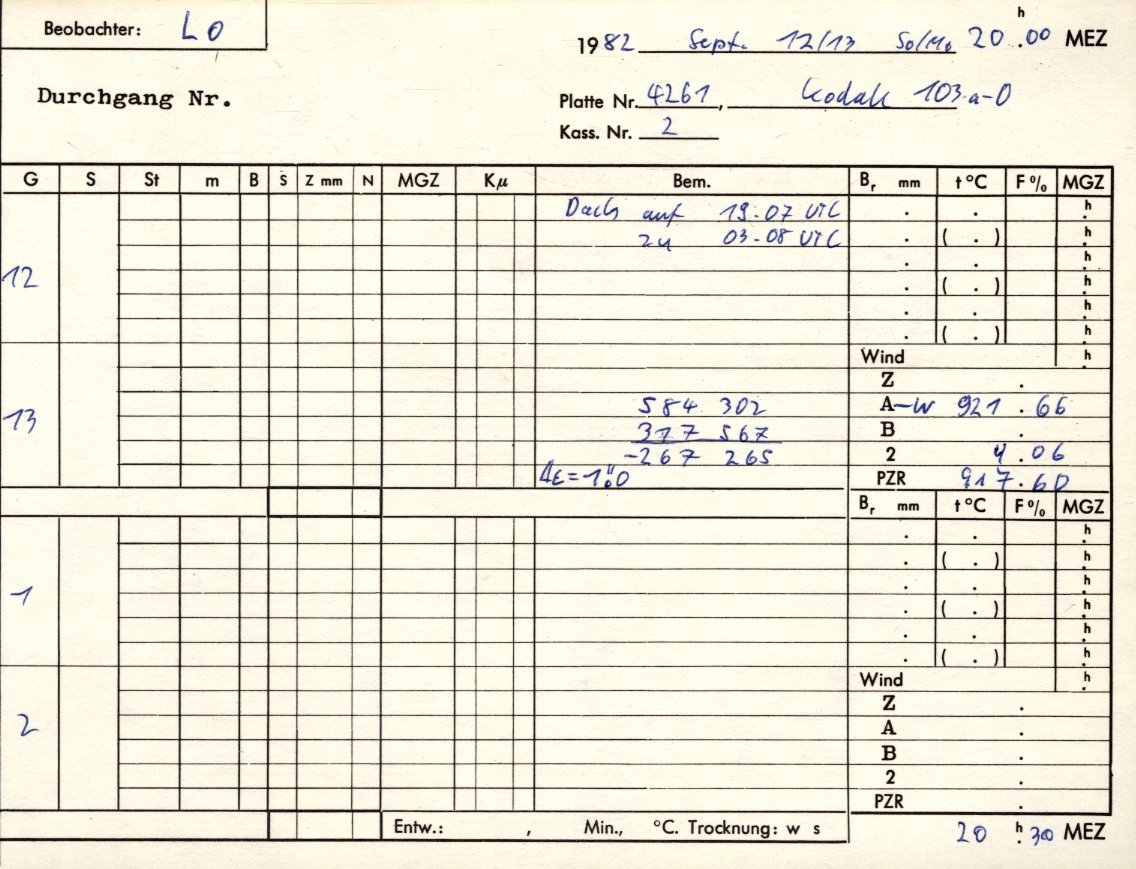 Beobachter: LO
h
1982 Sept. 12/13 So/Mo 20.00 MEZ
Durchgang Nr.
Platte Nr. 4261, Kodak 103a-O
Kass. Nr. 2
G S St m B S Z mm N MGZ Kμ Bem. Br mm t°C F% MGZ
Dach auf 19.07 UTC . . h.
zu 03.08 UTC . ( . ) h.
. . h.
12 . ( . ) h.
. . h.
. ( . ) h.
Wind h.
Z .
584 302 A-W 921.66
13 317 567 B .
-267 265 2 4.06
Δε=1".0 PZR 917.60
Br mm t°C F% MGZ
. . h.
. ( . ) h.
. . h.
1 . ( . ) h.
. . h.
. ( . ) h.
Wind h.
Z .
2 A .
B .
2 .
PZR .
Entw.: , Min., °C. Trocknung: w s
20 h.30 MEZ